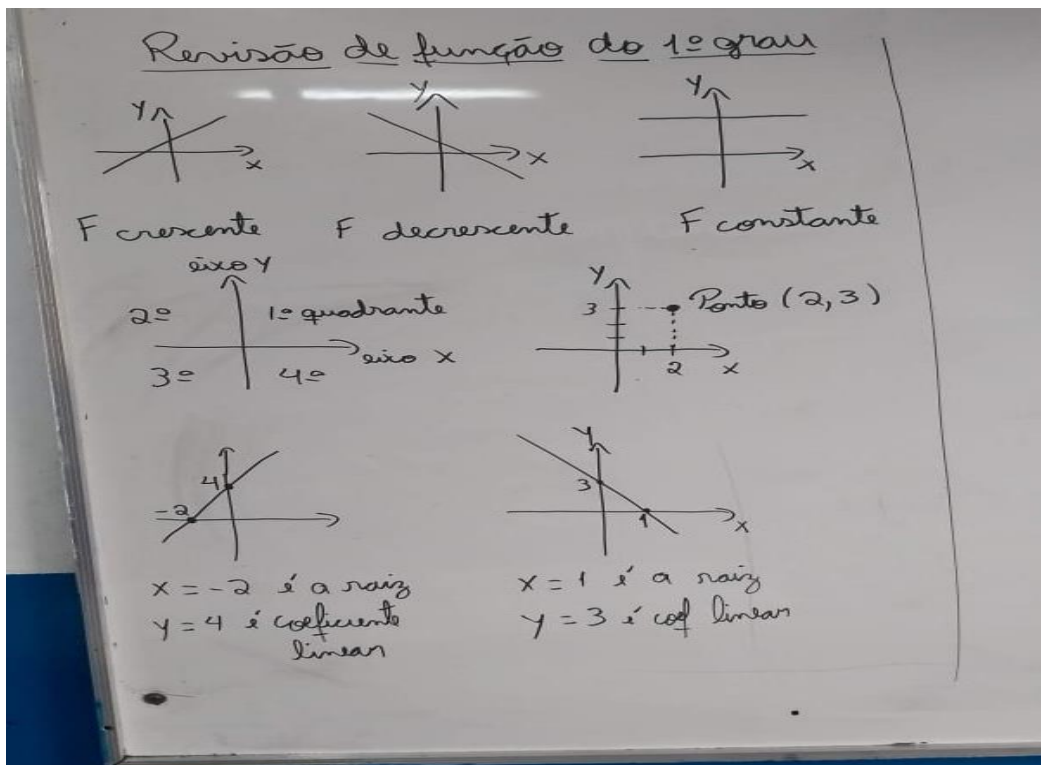 Revisão de função do 1º grau
y y y
x x x
F crescente F decrescente F constante
eixo y
2º 1º quadrante
eixo x
3º 4º
y
3 Ponto (2,3)
2 x
4
-2
y
3
1 x
x = -2 é a raiz
y = 4 é coeficiente
linear
x = 1 é a raiz
y = 3 é coef linear